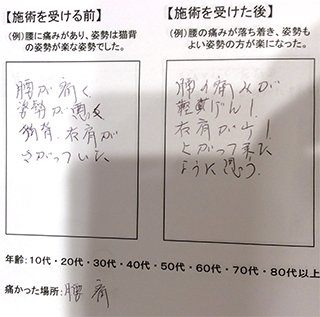 【施術を受ける前】
(例)腰に痛みがあり、姿勢は猫背
の姿勢が楽な姿勢でした。
腰が痛く
姿勢が悪く
猫背、右肩が
さがっていた
【施術を受けた後】
(例)腰の痛みが落ち着き、姿勢も
よい姿勢の方が楽になった。
腰の痛みが
軽減し!
右肩が
上がって来た
ように思う。
年齢:10代・20代・30代・40代・50代・60代・70代・80代以上
痛かった場所:腰痛